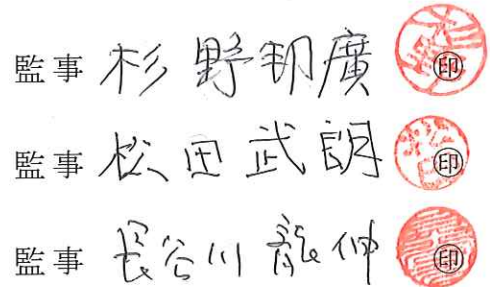 監事 杉野 翔廣 ㊞
監事 松田 武朗 ㊞
監事 長谷川 龍伸 ㊞